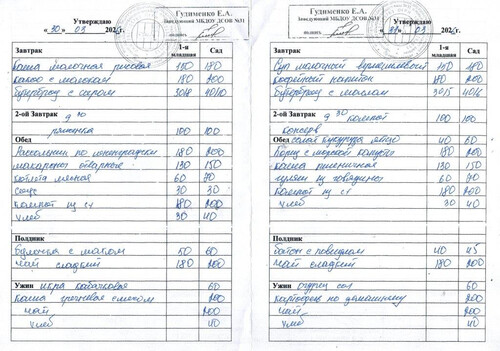 Утверждаю
« 30 » 03 202
Гудименко Е.А.
Заведующий МБДОУ ДСОВ №31
Завтрак 1-я младшая Сад
каша молочная рисовая 150 180
какао с молоком 180 200
бутерброд с сыром 30/8 40/10
2-ой Завтрак 9 30
ряженка 100 100
Обед
Рассольник по ленинградски 180 200
макароны отварные 130 150
котлета мясная 60 70
соус 30 30
компот из с/ф 180 200
хлеб 30 40
Полдник
булочка с маком 50 60
чай сладкий 180 200
Ужин икра кабачковая 60
каша гречневая с мясом 200
чай 200
хлеб 40
Утверждаю
« 31 » 03 202
Гудименко Е.А.
Заведующий МБДОУ ДСОВ №31
Завтрак 1-я младшая Сад
Суп молочный вермишелевый 150 180
кофейный напиток 180 200
бутерброд с маслом 30/5 40/6
2-ой Завтрак 9 30 100 100
Обед салат кукуруза яйцо 40 60
борщ с морской капусты 180 200
каша пшеничная 130 150
гуляш из говядины 60 70
компот из с/ф 180 200
хлеб 30 40
Полдник
батон с повидлом 40 45
чай сладкий 180 200
Ужин огурец сол 60
картофель по домашнему 200
чай 200
хлеб 40